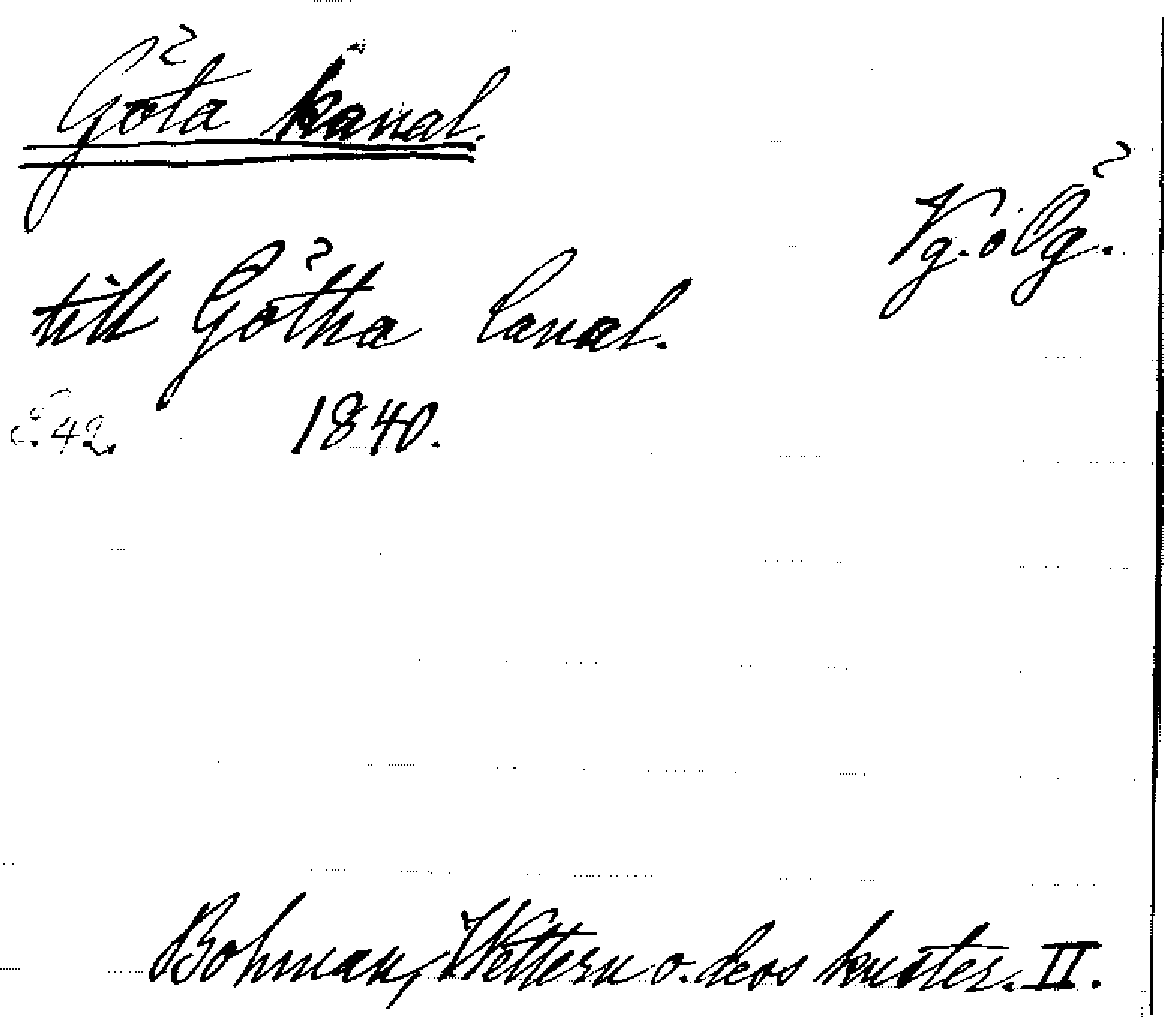 Göta kanal.
Vg. o Ög.
till Götha Canal.
E. 42. 1840.
Bohman, Wettern o. dess kuster. II.